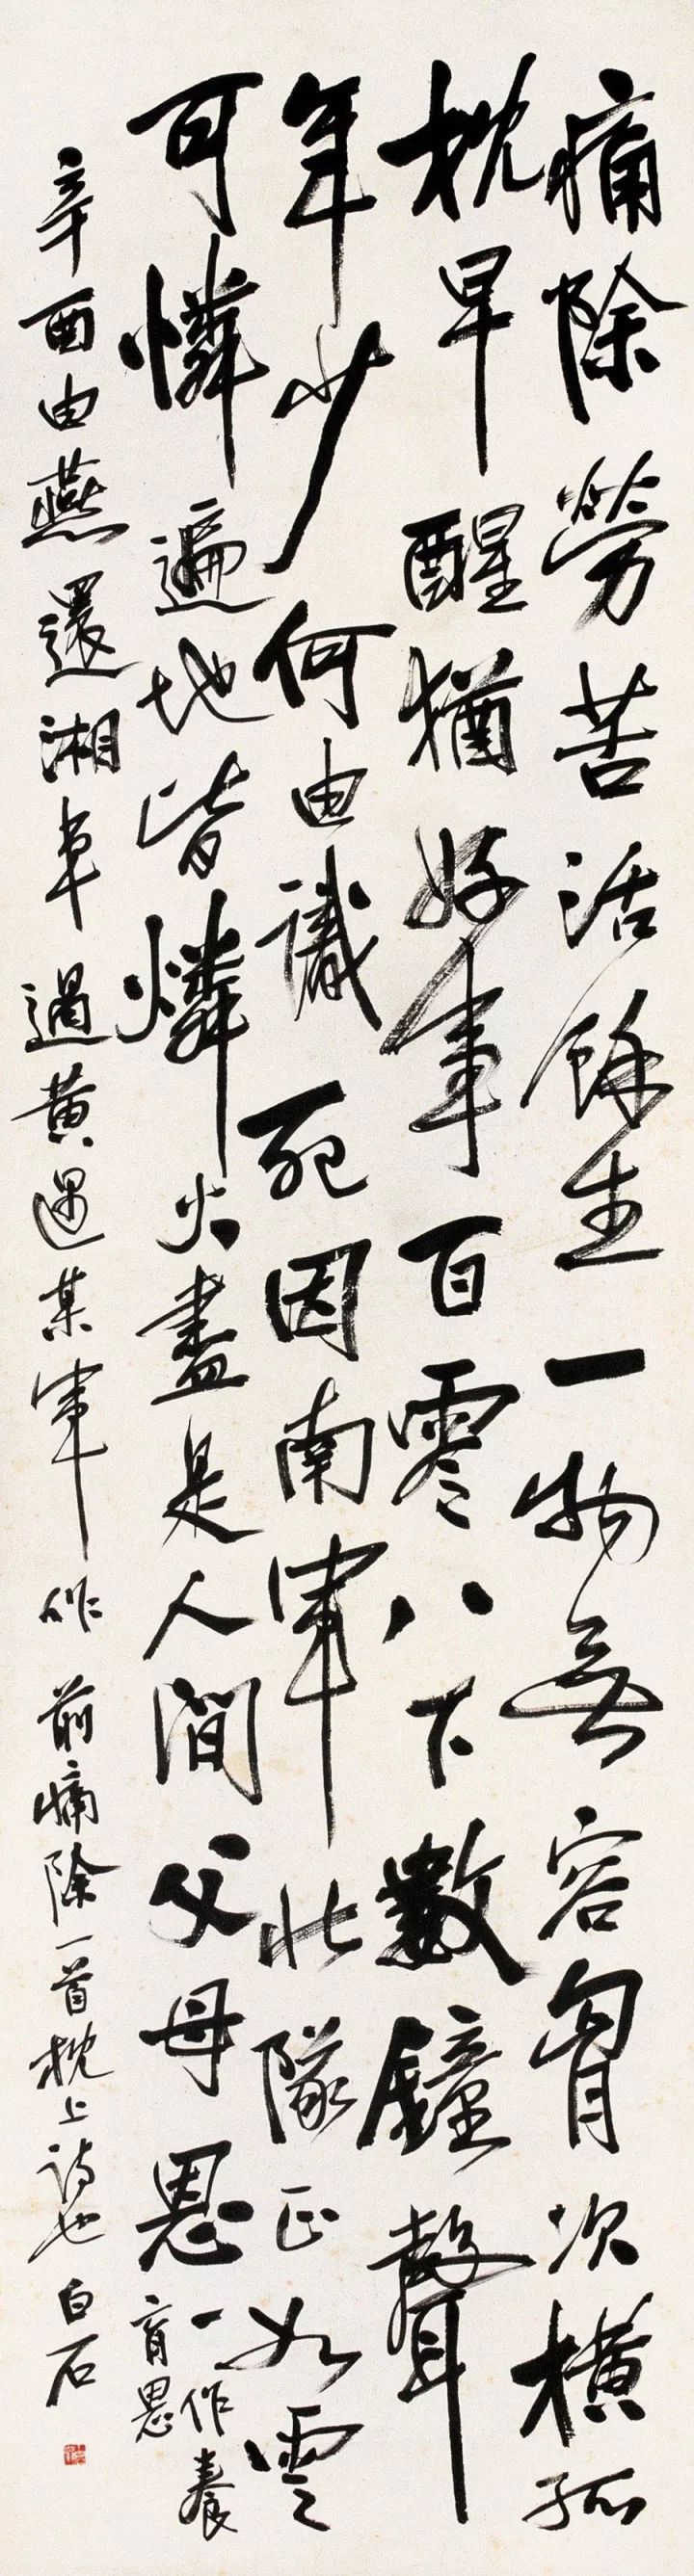 痛除勞苦活餘生一物無容胷次橫孤
枕早醒猶好事百零八下數鐘聲
年少何由識死因南軍北隊正如雲
可憐遍地皆燐火盡是人間父母恩
一作養
育恩
辛酉由燕還湘車過黃遇某軍作 前痛除一首枕上詩也 白石